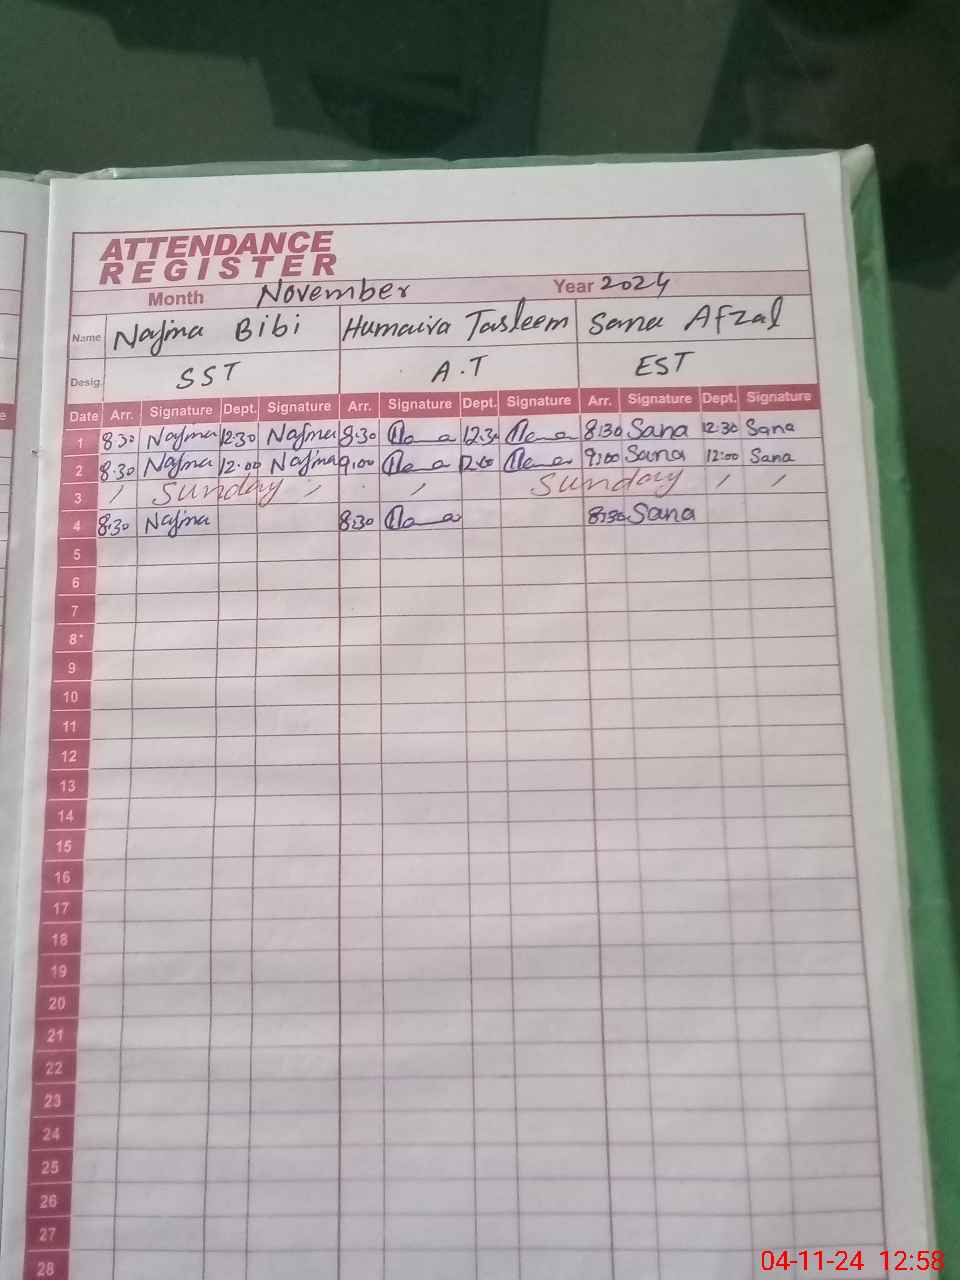 ATTENDANCE
REGISTER
Month November Year 2024
Name Najma Bibi Humaira Tasleem Sana Afzal
Desig. SST A.T EST
Date Arr. Signature Dept. Signature Arr. Signature Dept. Signature Arr. Signature Dept. Signature
1 8:30 Najma 12:30 Najma 8:30 12:30 8:30 Sana 12:30 Sana
2 8:30 Najma 12:00 Najma 9:00 12:00 9:00 Sana 12:00 Sana
3 Sunday Sunday
4 8:30 Najma 8:30 8:30 Sana
5
6
7
8
9
10
11
12
13
14
15
16
17
18
19
20
21
22
23
24
25
26
27
28
04-11-24 12:58